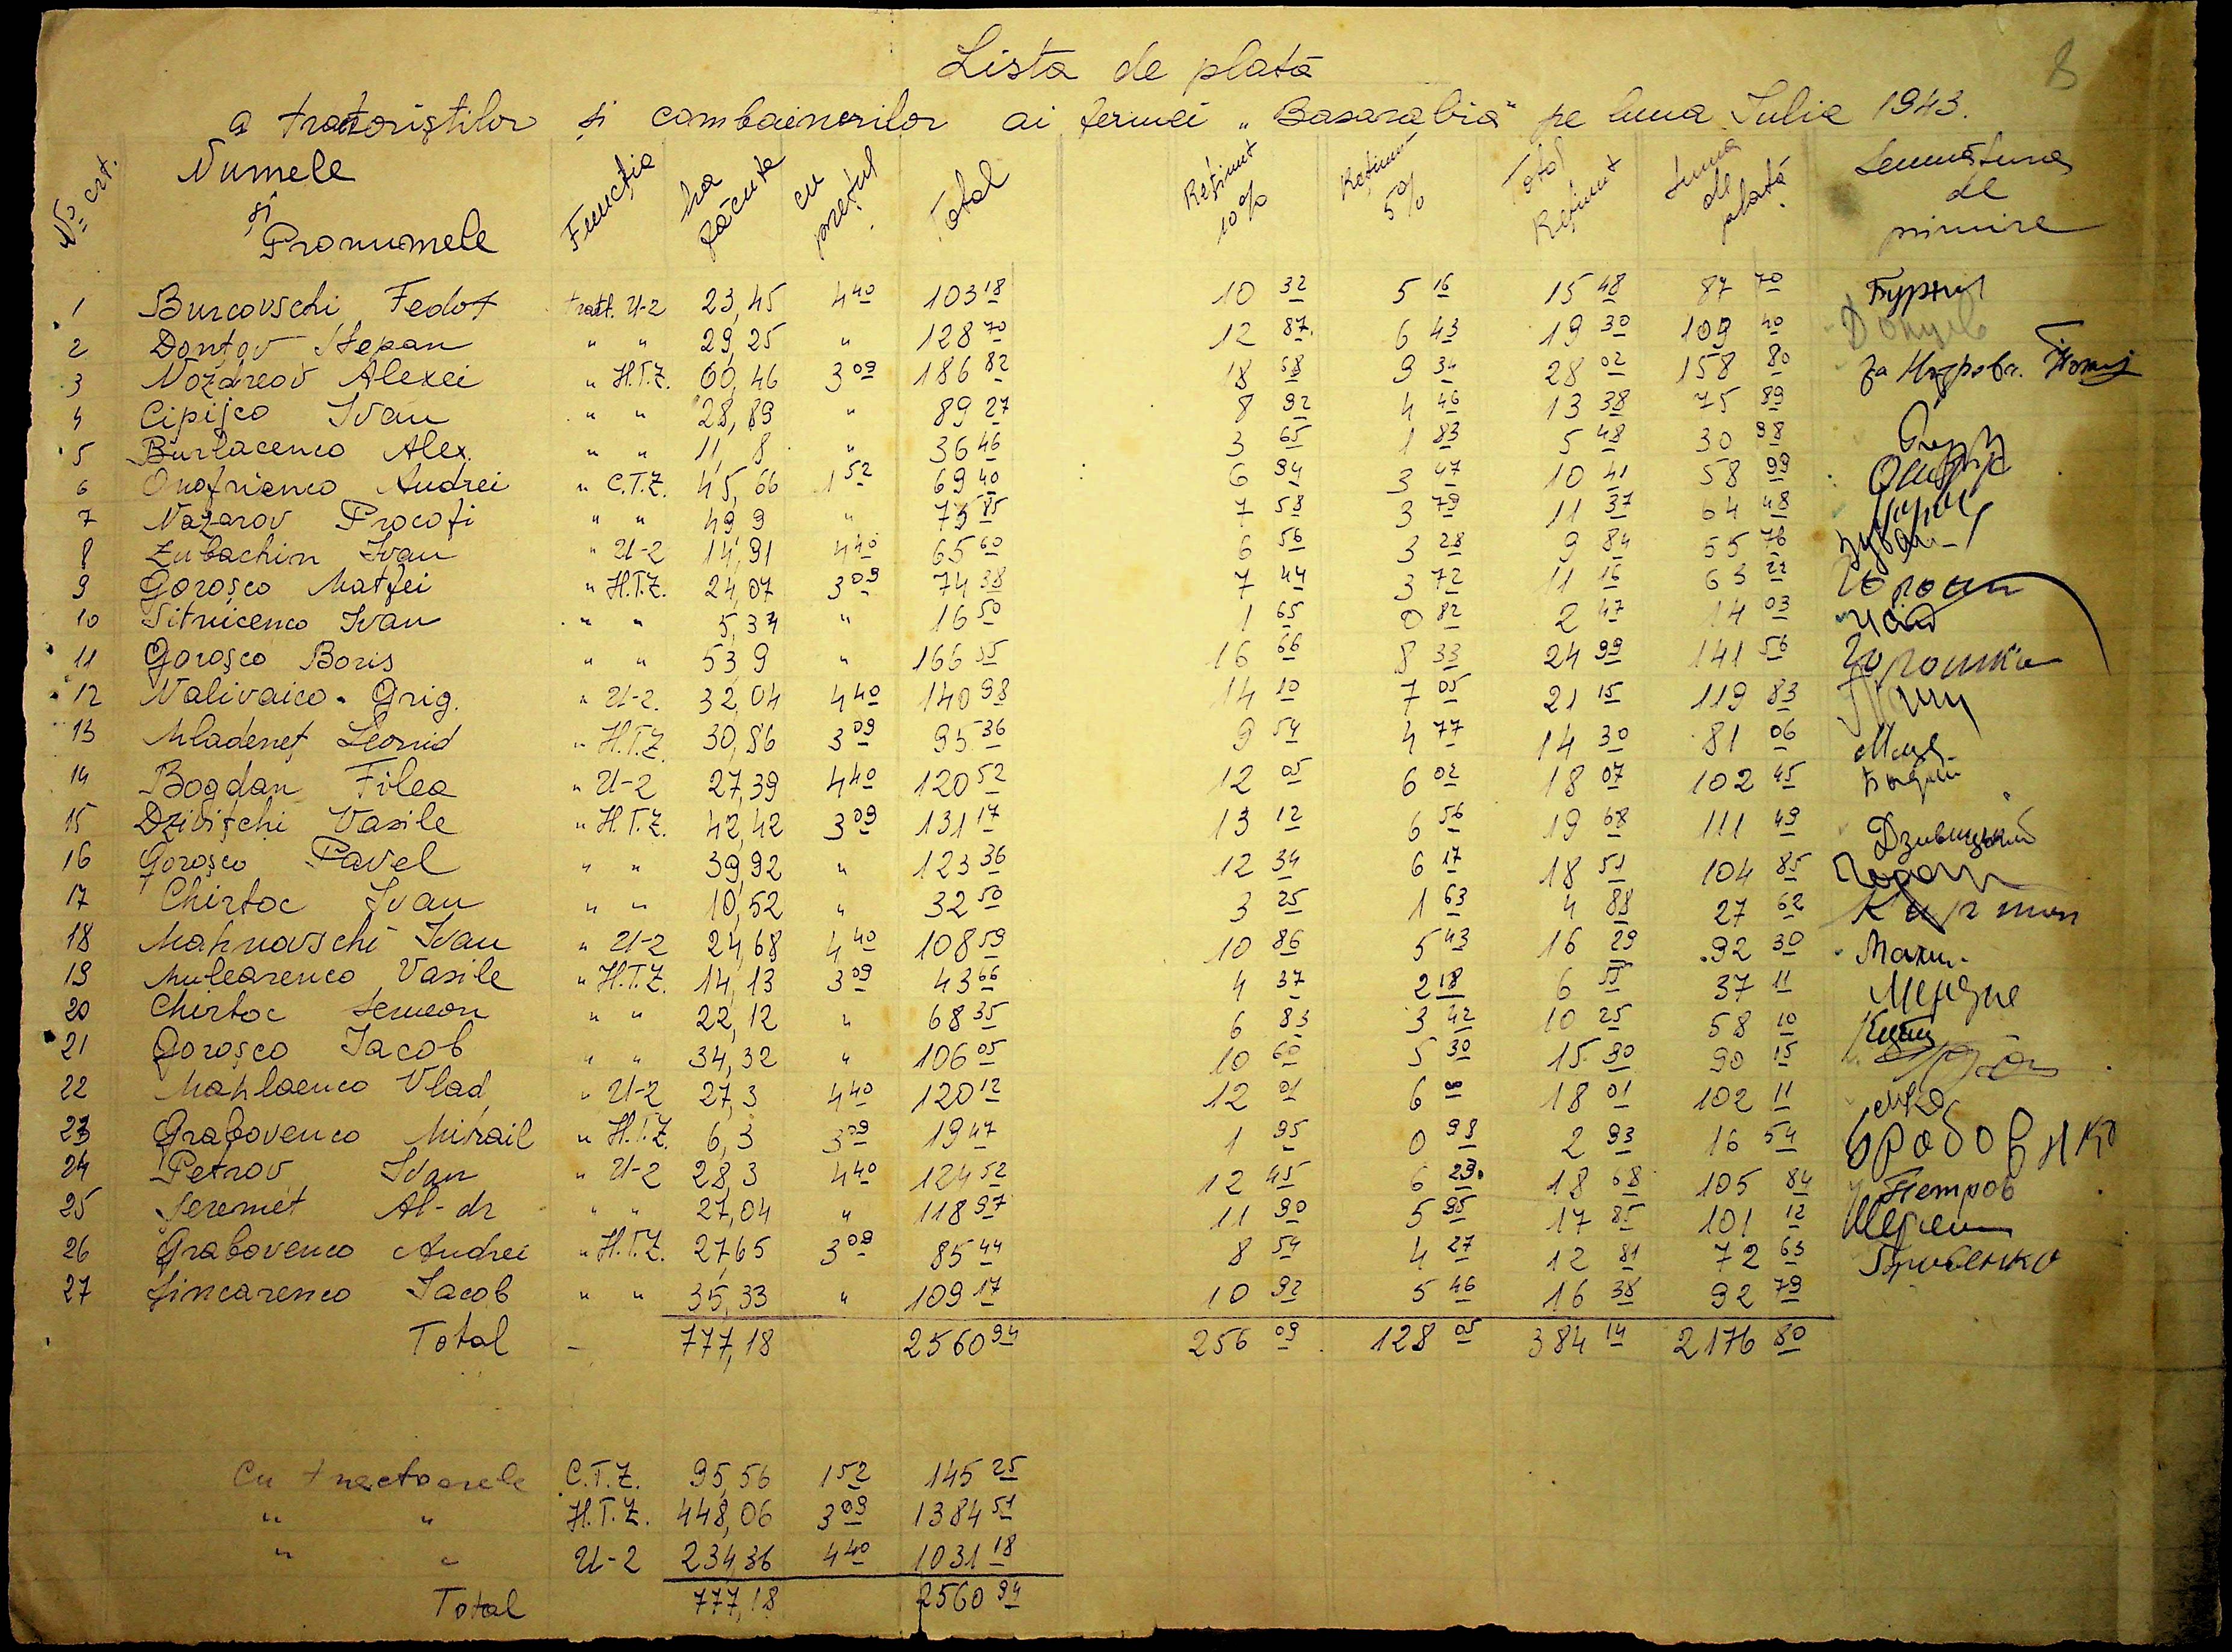 8
Lista de plată
a tractoriștilor și combainerilor ai fermei „Basarabia" pe luna Iulie 1943.
No crt. Numele și Pronumele Funcția ha făcute cu prețul Total Reținut 10% Reținut 5% Total Reținut Suma de plată Semnătura de primire
1 Burcovschi Fedot tract. U-2 23,45 4 40 103 18 10 32 5 16 15 48 87 70
2 Donțov Stepan " " 29,25 " 128 70 12 87 6 43 19 30 109 40
3 Nozdreov Alexei " H.T.Z. 60,46 3 09 186 82 18 68 9 34 28 02 158 80 За
4 Cipijco Ivan " " 28,89 " 89 27 8 92 4 46 13 38 75 89
5 Burlacenco Alex. " " 11,8 " 36 46 3 65 1 83 5 48 30 98
6 Onofrienco Andrei " C.T.Z. 45,66 1 52 69 40 6 94 3 47 10 41 58 99
7 Nazarov Procofi " " 49 9 " 75 85 7 58 3 79 11 37 64 48
8 Zubachin Ivan " U-2 14,91 4 40 65 60 6 56 3 28 9 84 55 76
9 Goroșco Matfei " H.T.Z. 24,07 3 09 74 38 7 44 3 72 11 16 63 22
10 Sitnicenco Ivan " " 5,34 " 16 50 1 65 0 82 2 47 14 03
11 Goroșco Boris " " 53,9 " 166 55 16 66 8 33 24 99 141 56 Горошко
12 Nalivaico Grig. " U-2. 32,04 4 40 140 98 14 10 7 05 21 15 119 83
13 Mladeneț Leonid " H.T.Z. 30,86 3 09 95 36 9 54 4 77 14 30 81 06
14 Bogdan Filea " U-2 27,39 4 40 120 52 12 05 6 02 18 07 102 45
15 Dzivițchi Vasile " H.T.Z. 42,42 3 09 131 17 13 12 6 56 19 68 111 49 Дзивицкий
16 Goroșco Pavel " " 39,92 " 123 36 12 34 6 17 18 51 104 85
17 Chirtoc Ivan " " 10,52 " 32 50 3 25 1 63 4 88 27 62
18 Mahnovschi Ivan " U-2 24,68 4 40 108 59 10 86 5 43 16 29 92 30 Махн.
19 Mulearenco Vasile " H.T.Z. 14,13 3 09 43 66 4 37 2 18 6 55 37 11
20 Chirtoc Semeon " " 22,12 " 68 35 6 83 3 42 10 25 58 10
21 Goroșco Iacob " " 34,32 " 106 05 10 60 5 30 15 90 90 15
22 Mahlaenco Vlad " U-2 27,3 4 40 120 12 12 01 6 00 18 01 102 11
23 Grabovenco Mihail " H.T.Z. 6,3 3 09 19 47 1 95 0 98 2 93 16 54
24 Petrov Ivan " U-2 28,3 4 40 124 52 12 45 6 23 18 68 105 84 Петров
25 Seremet Al-dr " " 27,04 " 118 97 11 90 5 95 17 85 101 12
26 Grabovenco Andrei " H.T.Z. 27,65 3 09 85 44 8 54 4 27 12 81 72 63
27 Șincarenco Iacob " " 35,33 " 109 17 10 92 5 46 16 38 92 79
Total - 777,18 2560 94 256 09 128 05 384 14 2176 80
Cu tractoarele C.T.Z. 95,56 1 52 145 25
" " H.T.Z. 448,06 3 09 1384 51
" " U-2 234,36 4 40 1031 18
Total 777,18 2560 94